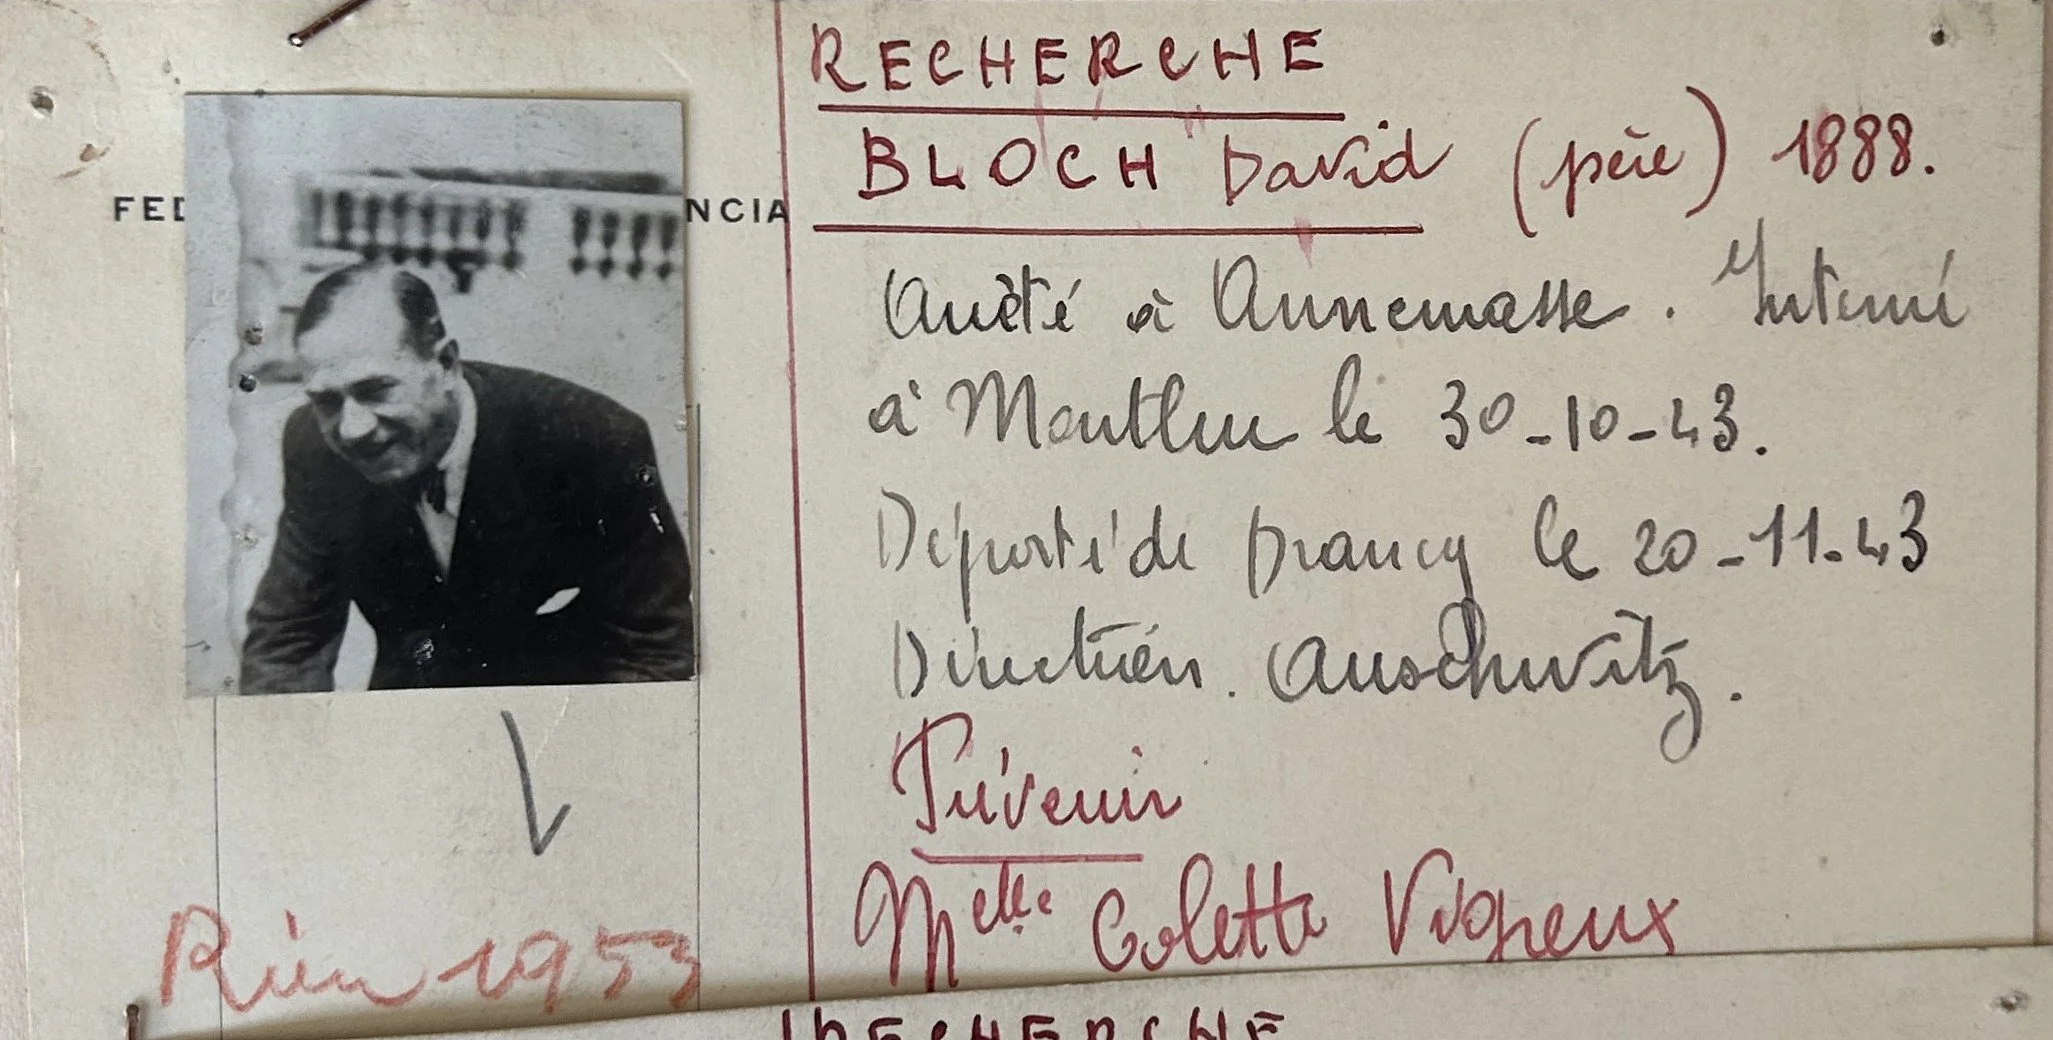 RECHERCHE
BLOCH David (père) 1888.
FED NCIA
Arrêté à Annemasse. Interné
à Montluc le 30-10-43.
Déporté de Drancy le 20-11-43
Direction. Auschwitz.
Prévenir
Melle Colette Vigneux
Rien 1953
RECHERCHE